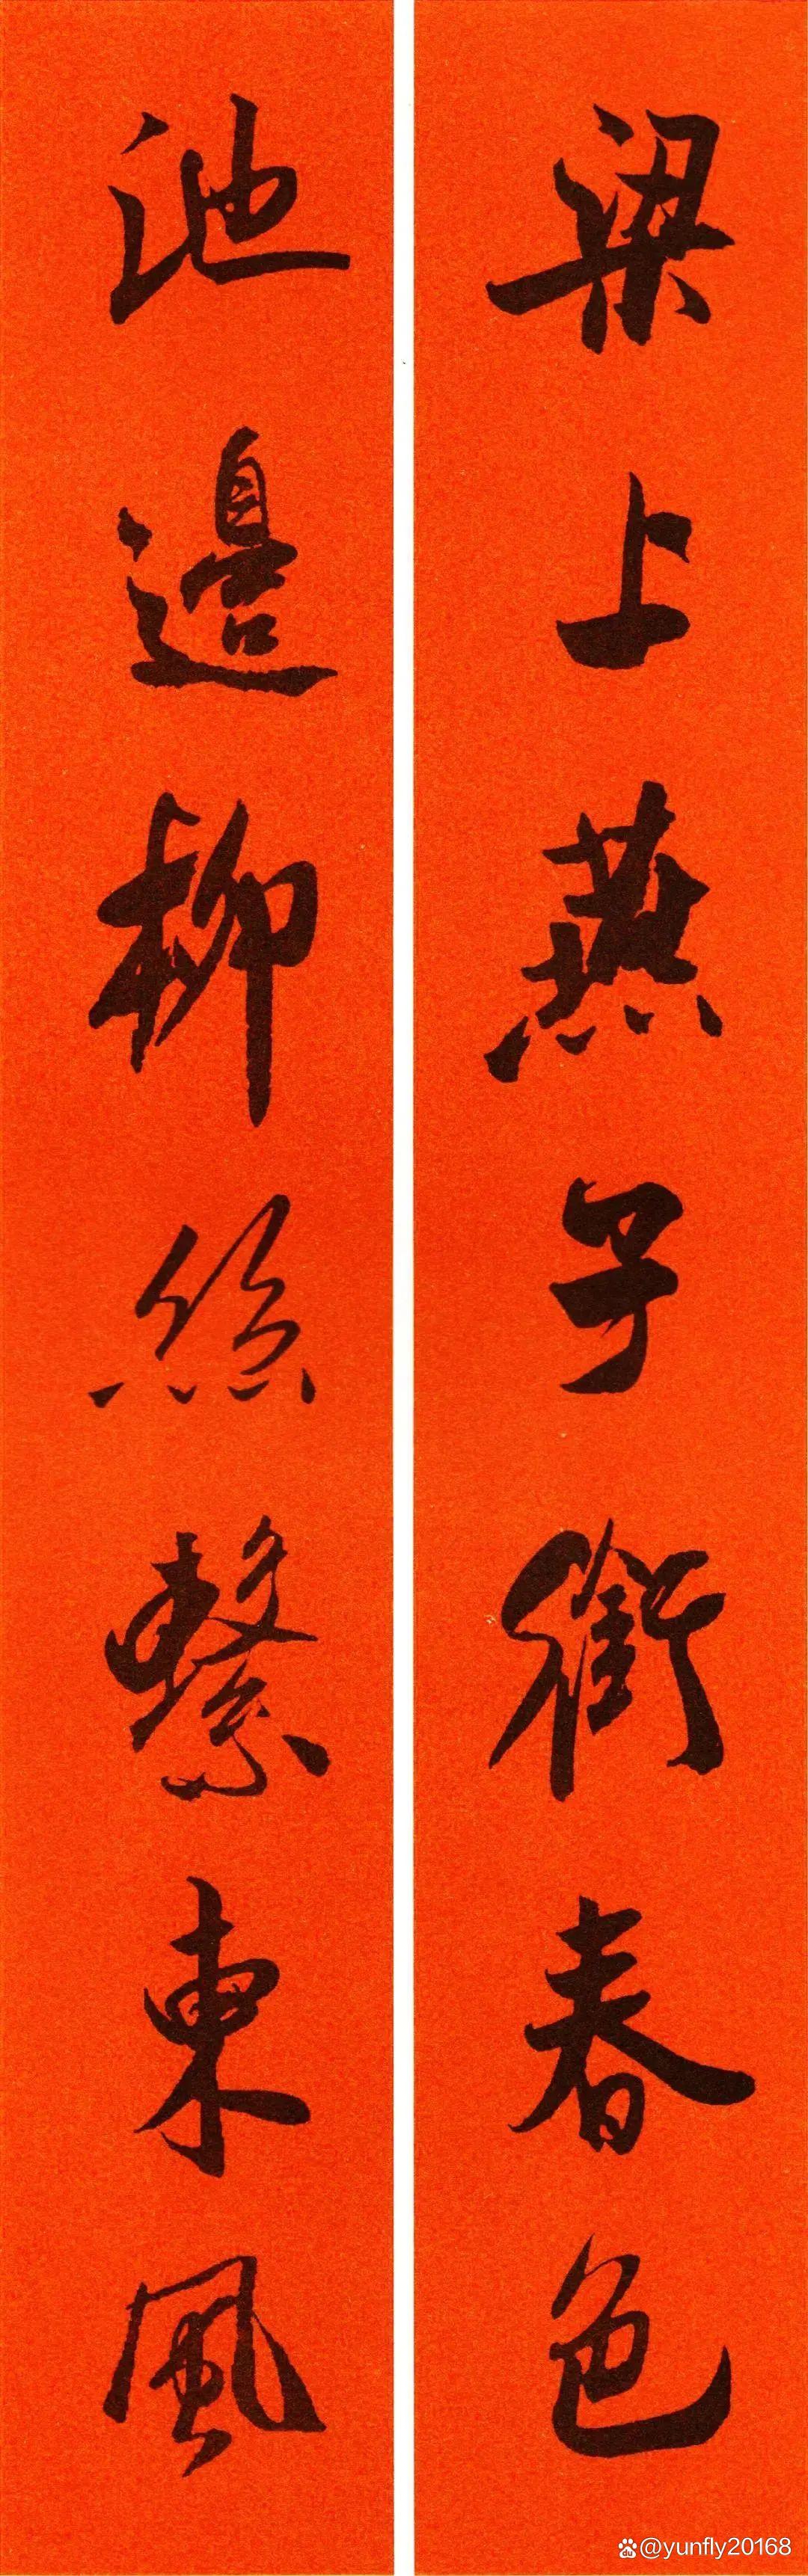 梁上燕子銜春色
池邊柳絲繫東風
@yunfly20168